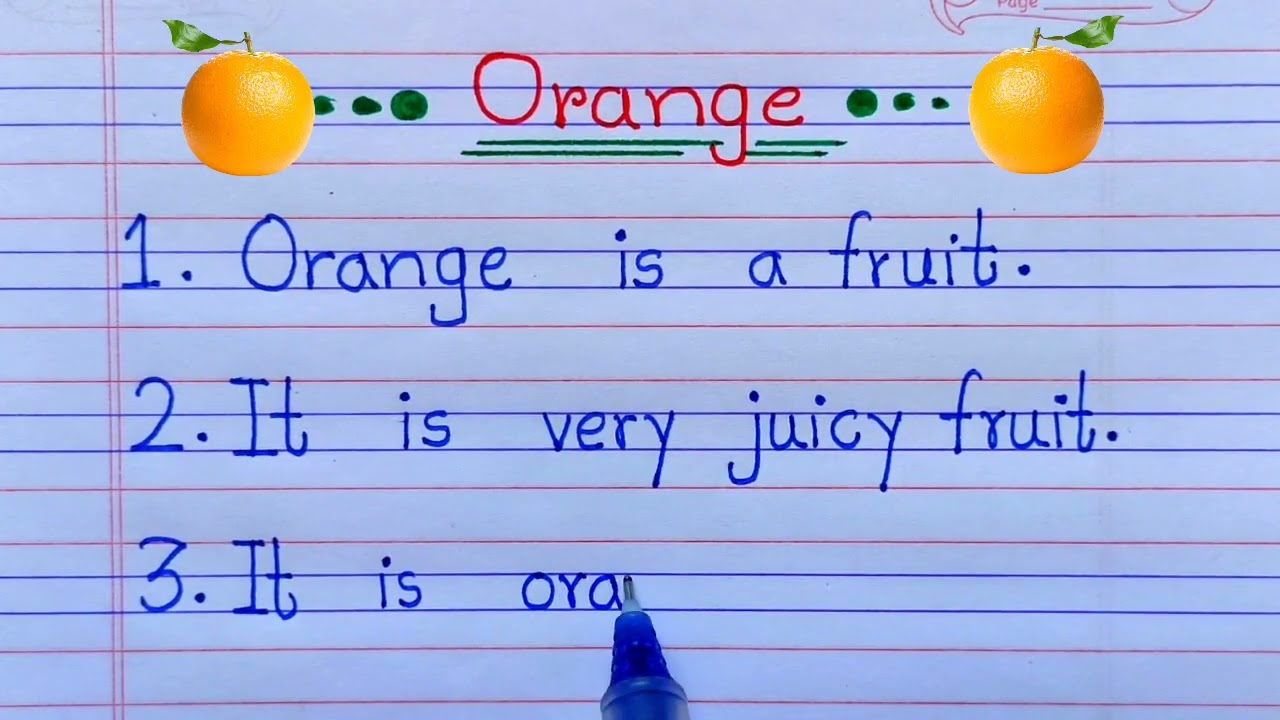 Page
Orange
1. Orange is a fruit.
2. It is very juicy fruit.
3. It is ora